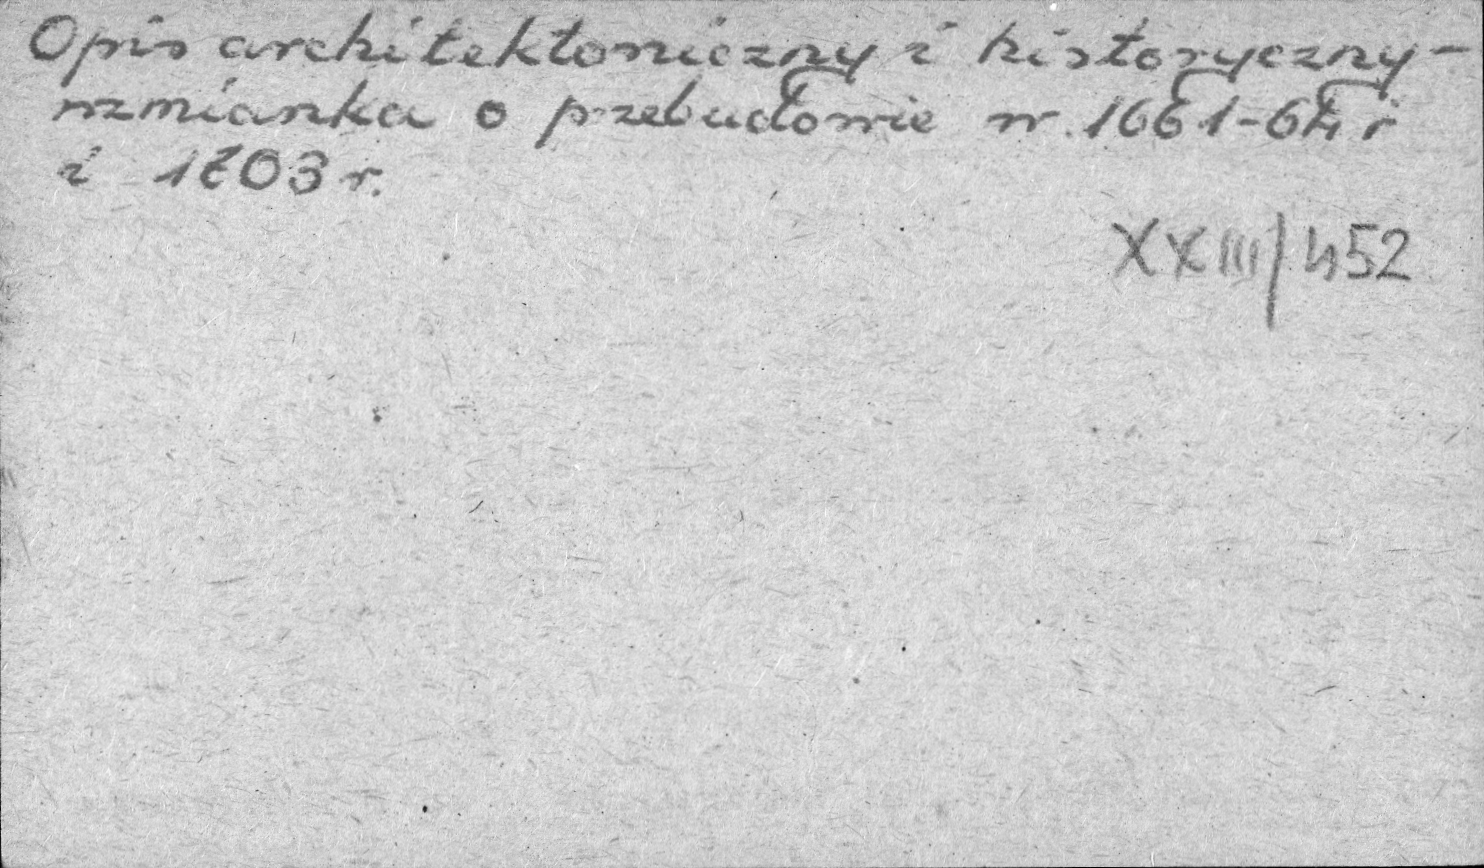 Opis architektoniczny i historyczny -
wzmianka o przebudowie w 1661-64 r
i 1703 r.
XXIII/452